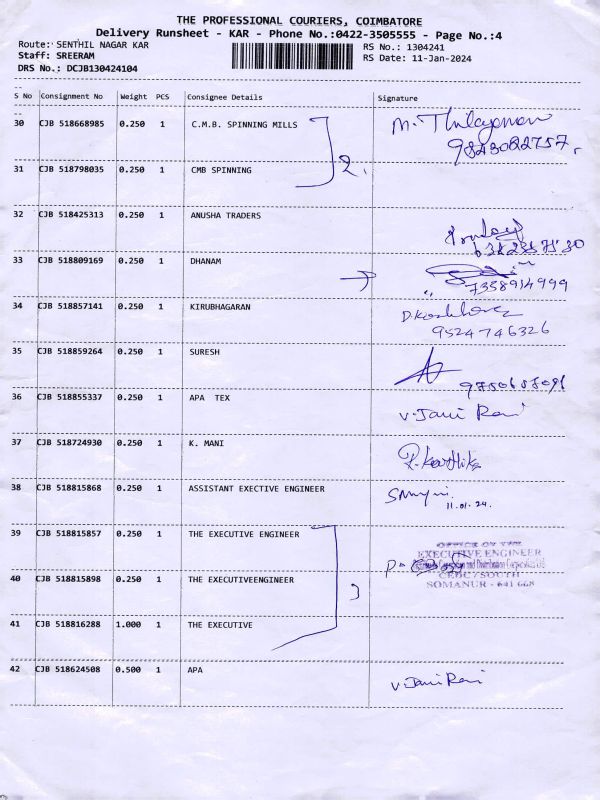 THE PROFESSIONAL COURIERS, COIMBATORE
Delivery Runsheet - KAR - Phone No.:0422-3505555 - Page No.:4
Route: SENTHIL NAGAR KAR RS No.: 1304241
Staff: SREERAM RS Date: 11-Jan-2024
DRS No.: DCJB130424104
S No Consignment No Weight PCS Consignee Details Signature
30 CJB 518668985 0.250 1 C.M.B. SPINNING MILLS M.
9843022757.
31 CJB 518798035 0.250 1 CMB SPINNING 2.
32 CJB 518425313 0.250 1 ANUSHA TRADERS
33 CJB 518809169 0.250 1 DHANAM
7358914999
34 CJB 518857141 0.250 1 KIRUBHAGARAN
9524746326
35 CJB 518859264 0.250 1 SURESH
36 CJB 518855337 0.250 1 APA TEX V. Jani Rani
37 CJB 518724930 0.250 1 K. MANI P. Karthika
38 CJB 518815868 0.250 1 ASSISTANT EXECTIVE ENGINEER
11.01.24.
39 CJB 518815857 0.250 1 THE EXECUTIVE ENGINEER
OFFICE OF THE
EXECUTIVE ENGINEER
CEDC/SOUTH
SOMANUR - 641 668
40 CJB 518815898 0.250 1 THE EXECUTIVEENGINEER 3
41 CJB 518816288 1.000 1 THE EXECUTIVE
42 CJB 518624508 0.500 1 APA V. Jani Rani